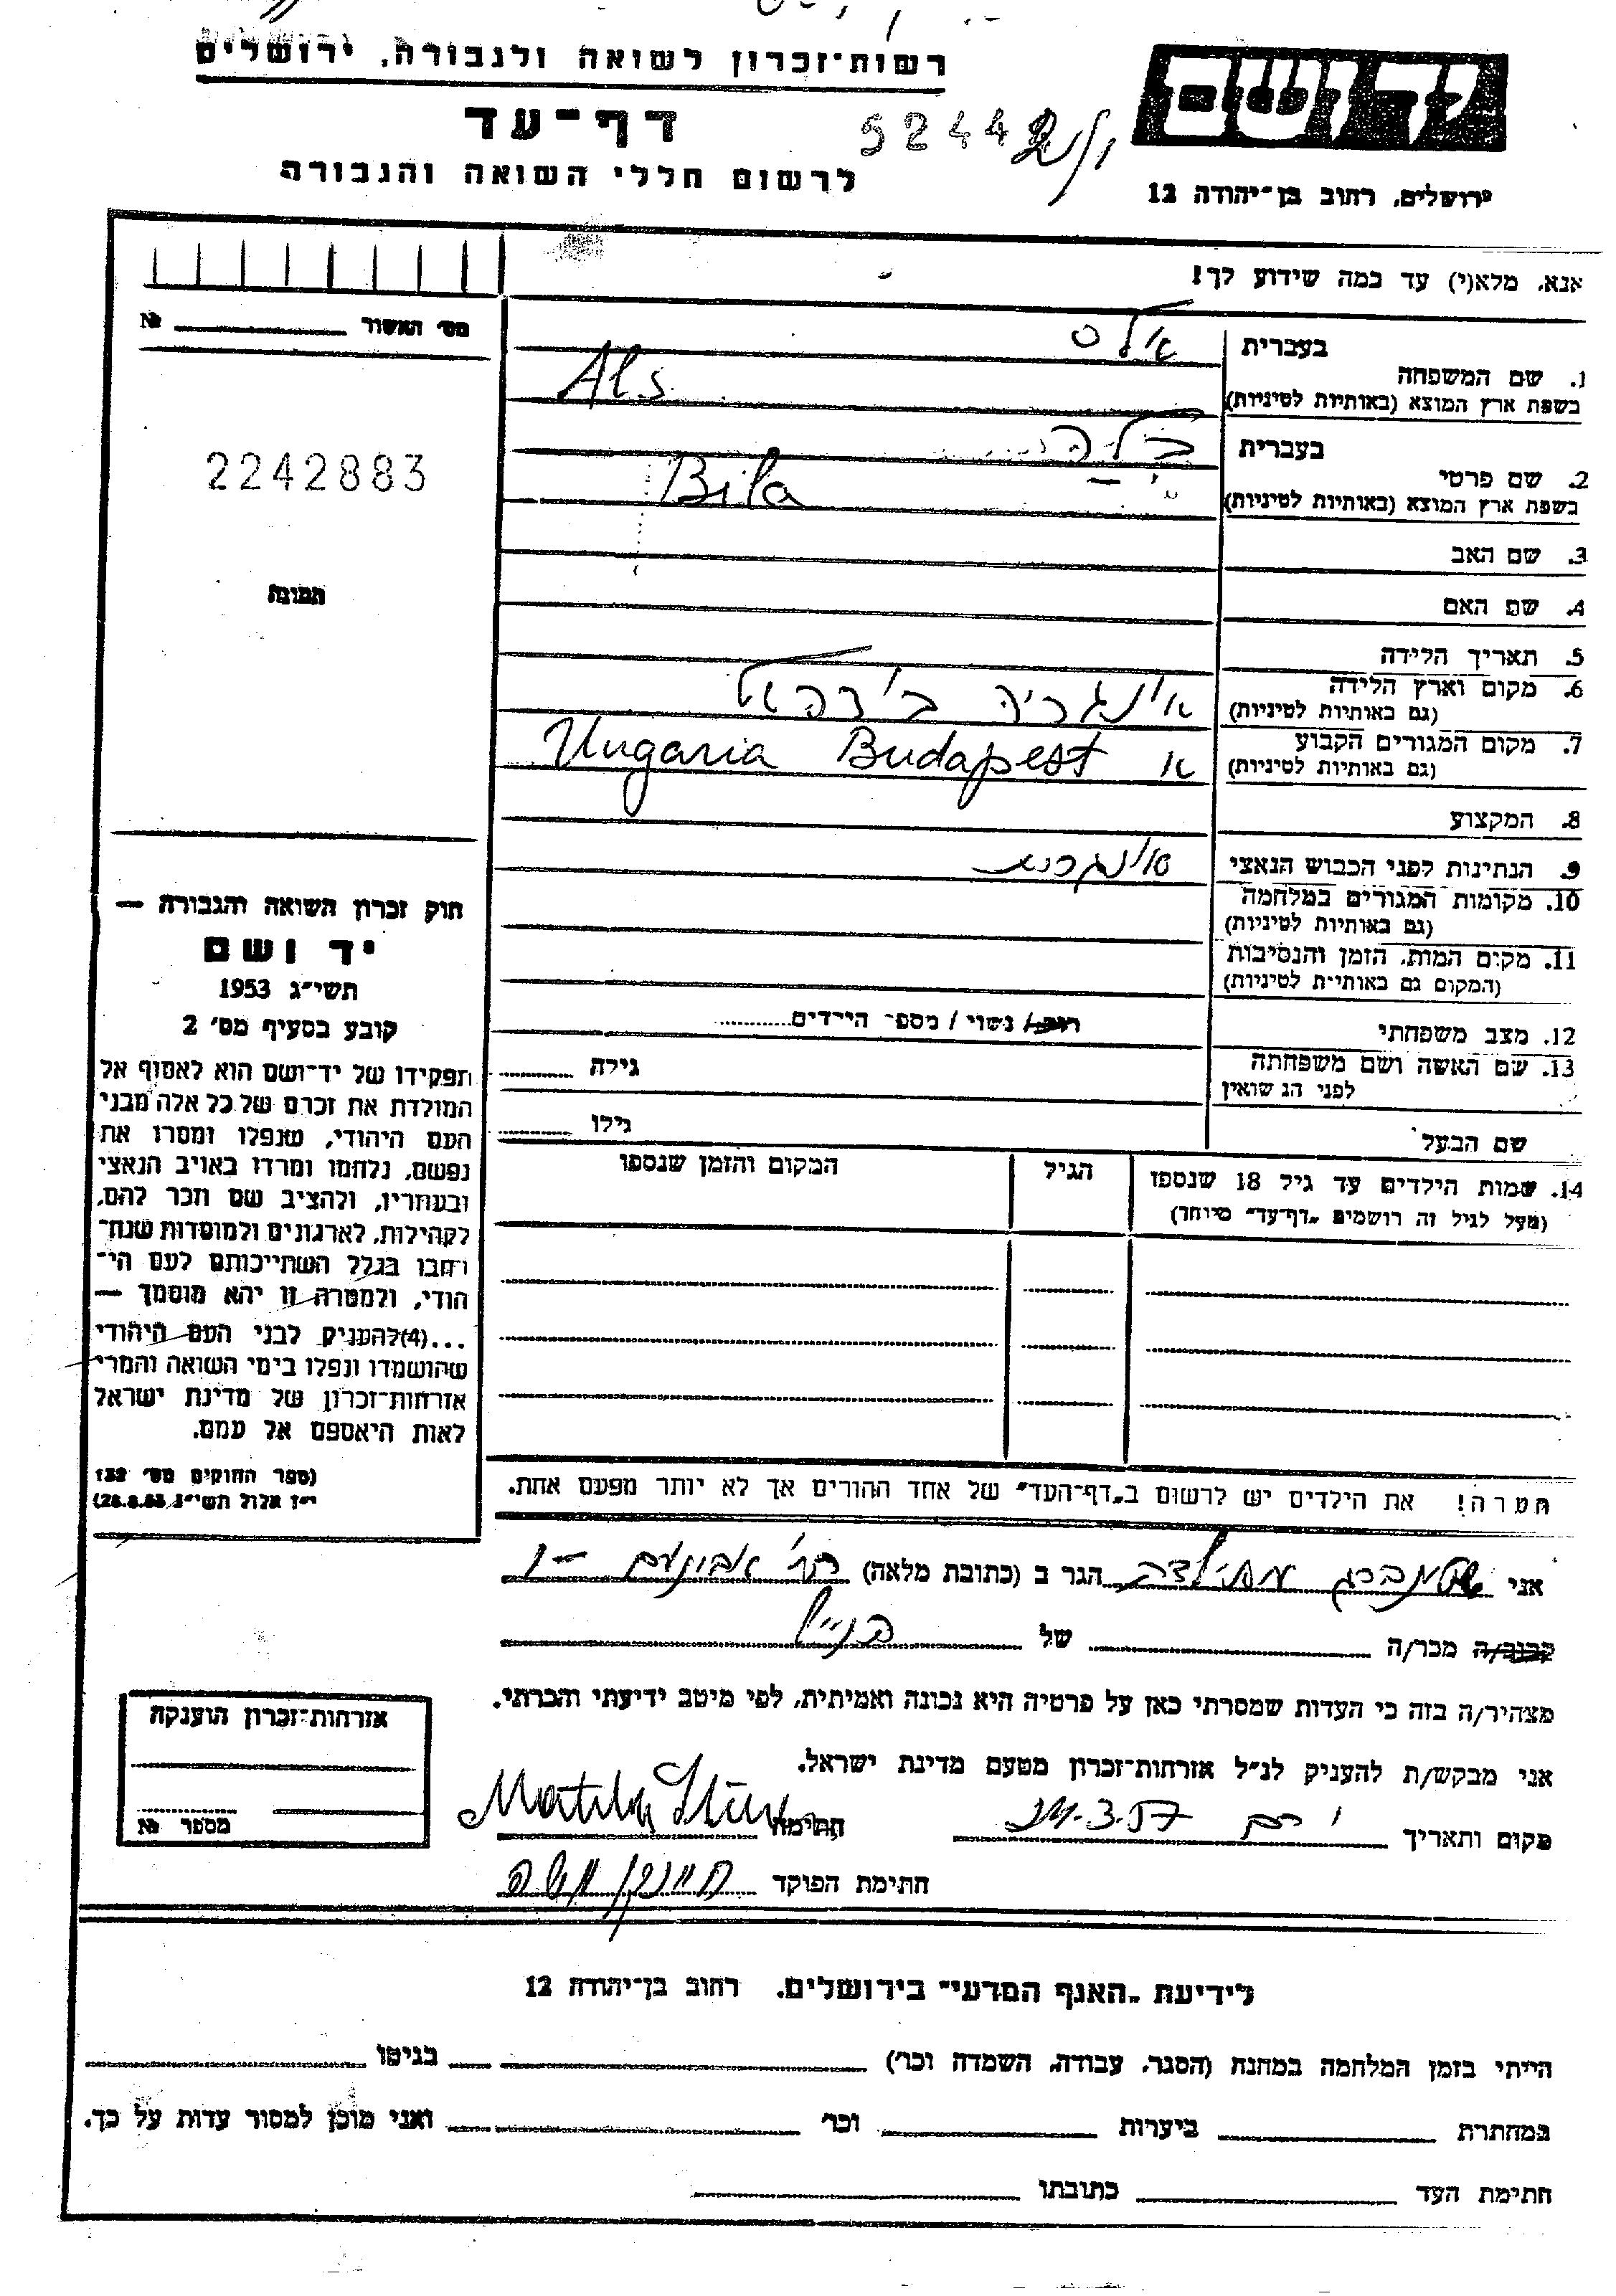 רשות־זכרון לשואה ולגבורה, ירושלים
יד ושם
דף־עד
לרשום חללי השואה והגבורה
ירושלים, רחוב בן־יהודה 12
אנא, מלא(י) עד כמה שידוע לך!
מס׳ האשור №
1. שם המשפחה
בעברית
אילס
בשפת ארץ המוצא (באותיות לטיניות)
Als
2242883
2. שם פרטי
בעברית
בילה
בשפת ארץ המוצא (באותיות לטיניות)
Bila
3. שם האב
תמונה
4. שם האם
5. תאריך הלידה
6. מקום וארץ הלידה
(גם באותיות לטיניות)
7. מקום המגורים הקבוע
(גם באותיות לטיניות)
Ungaria Budapest
8. המקצוע
9. הנתינות לפני הכבוש הנאצי
10. מקומות המגורים במלחמה
(גם באותיות לטיניות)
11. מקום המות, הזמן והנסיבות
(המקום גם באותיות לטיניות)
12. מצב משפחתי
רווק / נשוי / מספר הילדים
13. שם האשה ושם משפחתה
לפני הנישואין
גילה
שם הבעל
גילו
14. שמות הילדים עד גיל 18 שנספו
(מעל לגיל זה רושמים „דף־עד" מיוחד)
הגיל
המקום והזמן שנספו
חוק זכרון השואה והגבורה —
יד ושם
תשי״ג 1953
קובע בסעיף מס׳ 2
תפקידו של יד־ושם הוא לאסוף אל
המולדת את זכרם של כל אלה מבני
העם היהודי, שנפלו ומסרו את
נפשם, נלחמו ומרדו באויב הנאצי
ובעוזריו, ולהציב שם וזכר להם,
לקהילות, לארגונים ולמוסדות שנח־
רבו בגלל השתייכותם לעם הי־
הודי, ולמטרה זו יהא מוסמך —
...(4) להעניק לבני העם היהודי
שהושמדו ונפלו בימי השואה והמרי
אזרחות־זכרון של מדינת ישראל
לאות היאספם אל עמם.
(ספר החוקים מס׳ 132
י״ז אלול תשי״ג 28.8.53)
הערה! את הילדים יש לרשום ב„דף־העד" של אחד ההורים אך לא יותר מפעם אחת.
אני שטמברג מטילדה הגר ב (כתובת מלאה) רח׳ אבינועם 1
קרוב/ה מכר/ה של הנ״ל
מצהיר/ה בזה כי העדות שמסרתי כאן על פרטיה היא נכונה ואמיתית, לפי מיטב ידיעתי והכרתי.
אני מבקש/ת להעניק לנ״ל אזרחות־זכרון מטעם מדינת ישראל.
מקום ותאריך
חתימה
חתימת הפוקד
אזרחות־זכרון הוענקה
מספר №
לידיעת „האגף המדעי" בירושלים, רחוב בן־יהודה 12
הייתי בזמן המלחמה במחנה (הסגר, עבודה, השמדה וכו׳) בגיטו
במחתרת ביערות וכו׳ ואני מוכן למסור עדות על כך.
חתימת העד כתובתו